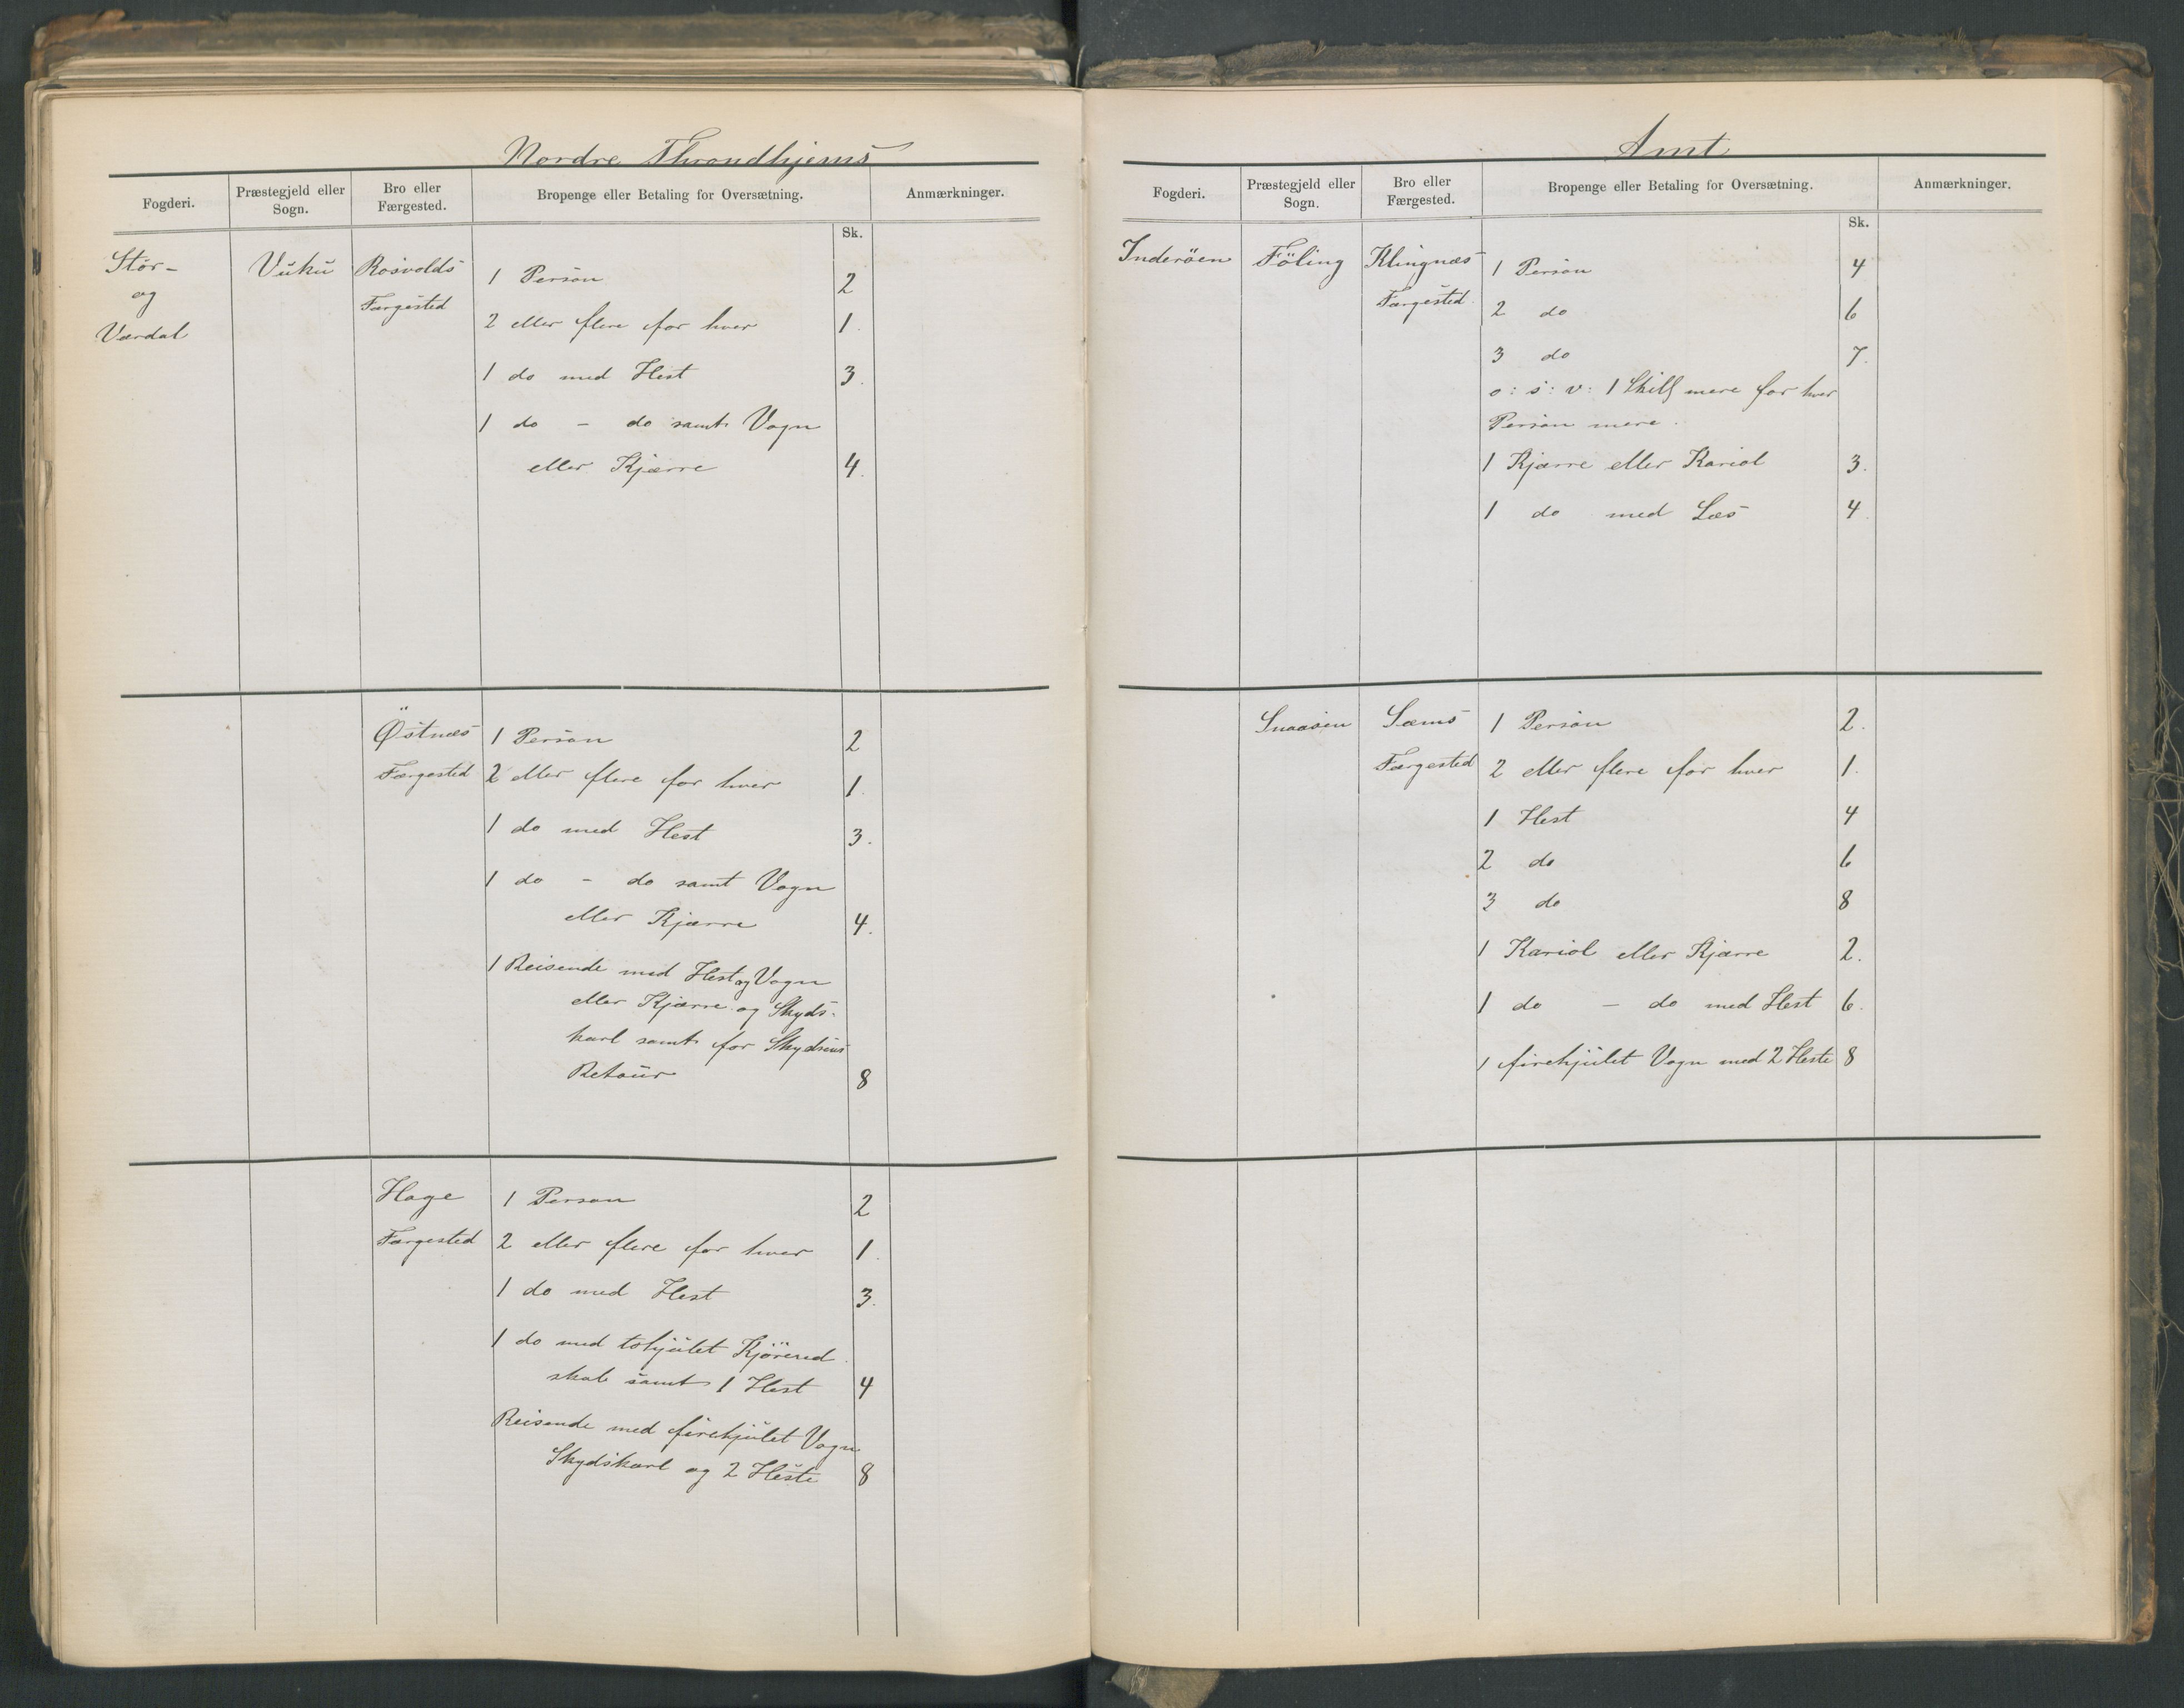 Nordre Throndhjems
Fogderi. Præstegjeld eller Sogn. Bro eller Færgested. Bropenge eller Betaling for Oversætning. Anmærkninger.
Sk.
Stør-
og
Værdal
Vuku
Rosvolds
Færgested
1 Person 2
2 eller flere for hver 1.
1 do med Hest 3.
1 do - do samt Vogn
eller Kjærre 4.
Østnæs
Færgested
1 Person 2
2 eller flere for hver 1.
1 do med Hest 3.
1 do - do samt Vogn
eller Kjærre 4.
1 Reisende med Hest og Vogn
eller Kjærre og Skyds-
karl samt for Skydsens
Retour 8
Hage
Færgested
1 Person 2
2 eller flere for hver 1.
1 do med Hest 3.
1 do med tohjulet Kjöred
skab samt 1 Hest 4
Reisende med firehjulet Vogn
Skydskarl og 2 Heste 8
Amt
Fogderi. Præstegjeld eller Sogn. Bro eller Færgested. Bropenge eller Betaling for Oversætning. Anmærkninger.
Sk.
Inderöen
Föling
Klingnæs
Færgested.
1 Person 4
2 do 6
3 do 7.
o: s: v: 1 Skill mere for hver
Person mere.
1 Kjærre eller Kariol 3.
1 do med Læs 4
Snaasen
Sæms
Færgested
1 Person 2.
2 eller flere for hver 1.
1 Hest 4
2 do 6
3 do 8
1 Kariol eller Kjærre 2.
1 do - do med Hest 6.
1 firehjulet Vogn med 2 Heste 8